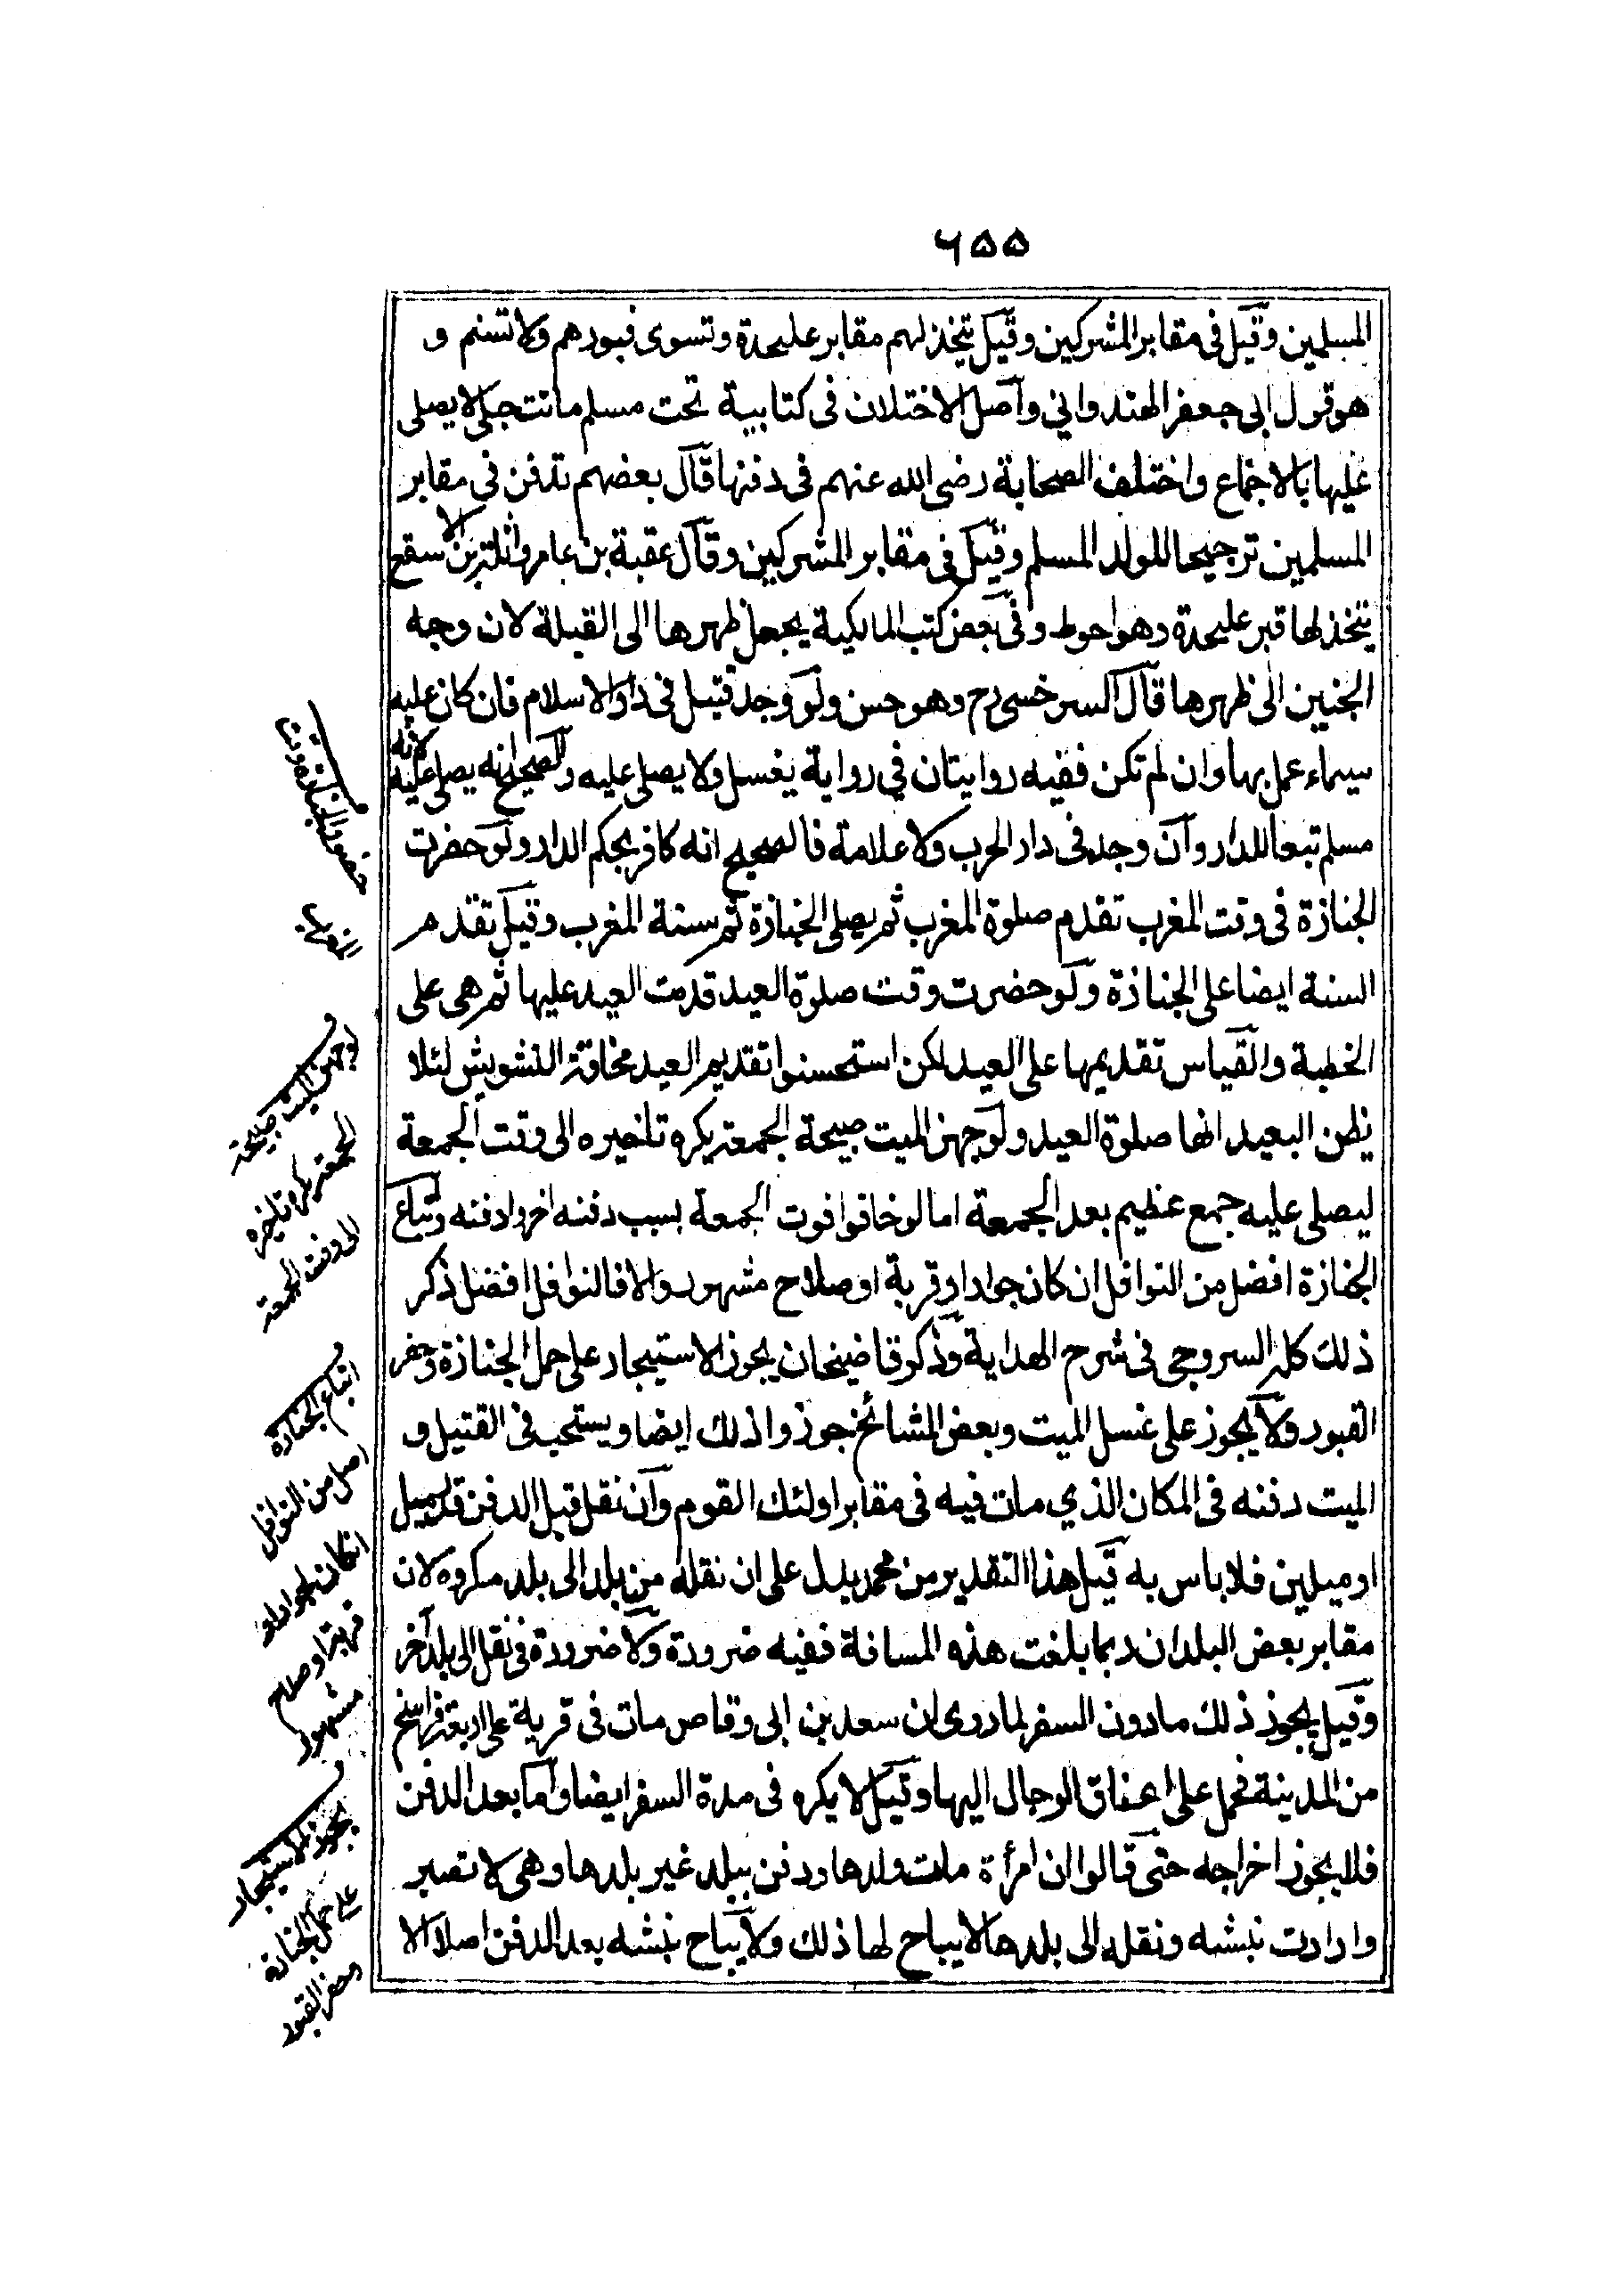 ۶۵۵
المسلمين وقيل فى مقابر المشركين وقيل يتخذ لهم مقابر عليحدة وتسوى قبورهم ولا تسنم و
هو قول ابى جعفر الهندوانى وأصل الاختلاف فى كتابية تحت مسلم ماتت حبلى لا يصلى
عليها بالاجماع واختلف الصحابة رضى الله عنهم فى دفنها قال بعضهم تدفن فى مقابر
المسلمين ترجيحا للولد المسلم وقيل فى مقابر المشركين وقال عقبة بن عامر واثلة بن الاسقع
يتخذ لها قبر عليحدة وهو احوط وفى بعض كتب المالكية يجعل ظهرها الى القبلة لان وجه
الجنين الى ظهرها قال السرخسى رح وهو حسن ولو وجد قتيل فى دار الاسلام فان كان عليه
سيماء عمل بها وان لم تكن ففيه روايتان فى رواية يغسل ولا يصلى عليه والصحيح انه يصلى عليه لانه
مسلم تبعا للدار وان وجد فى دار الحرب ولا علامة فالصحيح انه كافر بحكم الدار ولو حضرت
الجنازة فى وقت المغرب تقدم صلوة المغرب ثم يصلى الجنازة ثم سنة المغرب وقيل تقدم
السنة ايضا على الجنازة ولو حضرت وقت صلوة العيد قدمت العيد عليها ثم هى على
الخطبة والقياس تقديمها على العيد لكن استحسنوا تقديم العيد مخافة التشويش لئلا
يظن البعيد انها صلوة العيد ولو جهز الميت صبيحة الجمعة يكره تاخيره الى وقت الجمعة
ليصلى عليه جمع عظيم بعد الجمعة اما لو خافوا فوت الجمعة بسبب دفنه اخروا دفنه واتباع
الجنازة افضل من النوافل ان كان جوارا وقربة او صلاح مشهور والا فالنوافل افضل ذكر
ذلك كله السروجى فى شرح الهداية وذكر قاضيخان يجوز الاستيجار على حمل الجنازة وحفر
القبور ولا يجوز على غسل الميت وبعض المشائخ جوزوا ذلك ايضا ويستحب فى القتيل و
الميت دفنه فى المكان الذي مات فيه فى مقابر اولئك القوم وان نقل قبل الدفن قدر ميل
او ميلين فلا باس به قيل هذا التقدير من محمد يدل على ان نقله من بلد الى بلد مكروه لان
مقابر بعض البلدان ربما بلغت هذه المسافة ففيه ضرورة ولا ضرورة فى نقل الى بلد آخر
وقيل يجوز ذلك مادون السفر لما روى ان سعد بن ابى وقاص مات فى قرية على اربعة فراسخ
من المدينة فحمل على اعناق الرجال اليها وقيل لا يكره فى مدة السفر ايضا واما بعد الدفن
فلا يجوز اخراجه حتى قالوا ان امرأة مات ولدها ودفن ببلد غير بلدها وهى لا تصبر
وارادت نبشه ونقله الى بلدها لا يباح لها ذلك ولا يباح نبشه بعد الدفن اصلا الا
حضور الجنازة وقت
لو جهز الميت صبيحة
الجمعة يكره تاخيره
الى وقت الجمعة
اتباع الجنازة
افضل من النوافل
ان كان لجوار او
قربة او صلاح
مشهور
يجوز الاستيجار
على حمل الجنازة
وحفر القبور